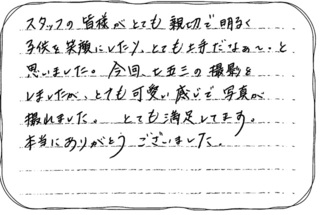 スタッフの皆様がとても親切で明るく
子供を笑顔にしたり、とても上手だなぁ〜、と
思いました。今回、七五三の撮影を
しましたが、とても可愛い感じで写真が
撮れました。とても満足してます。
本当にありがとうございました。